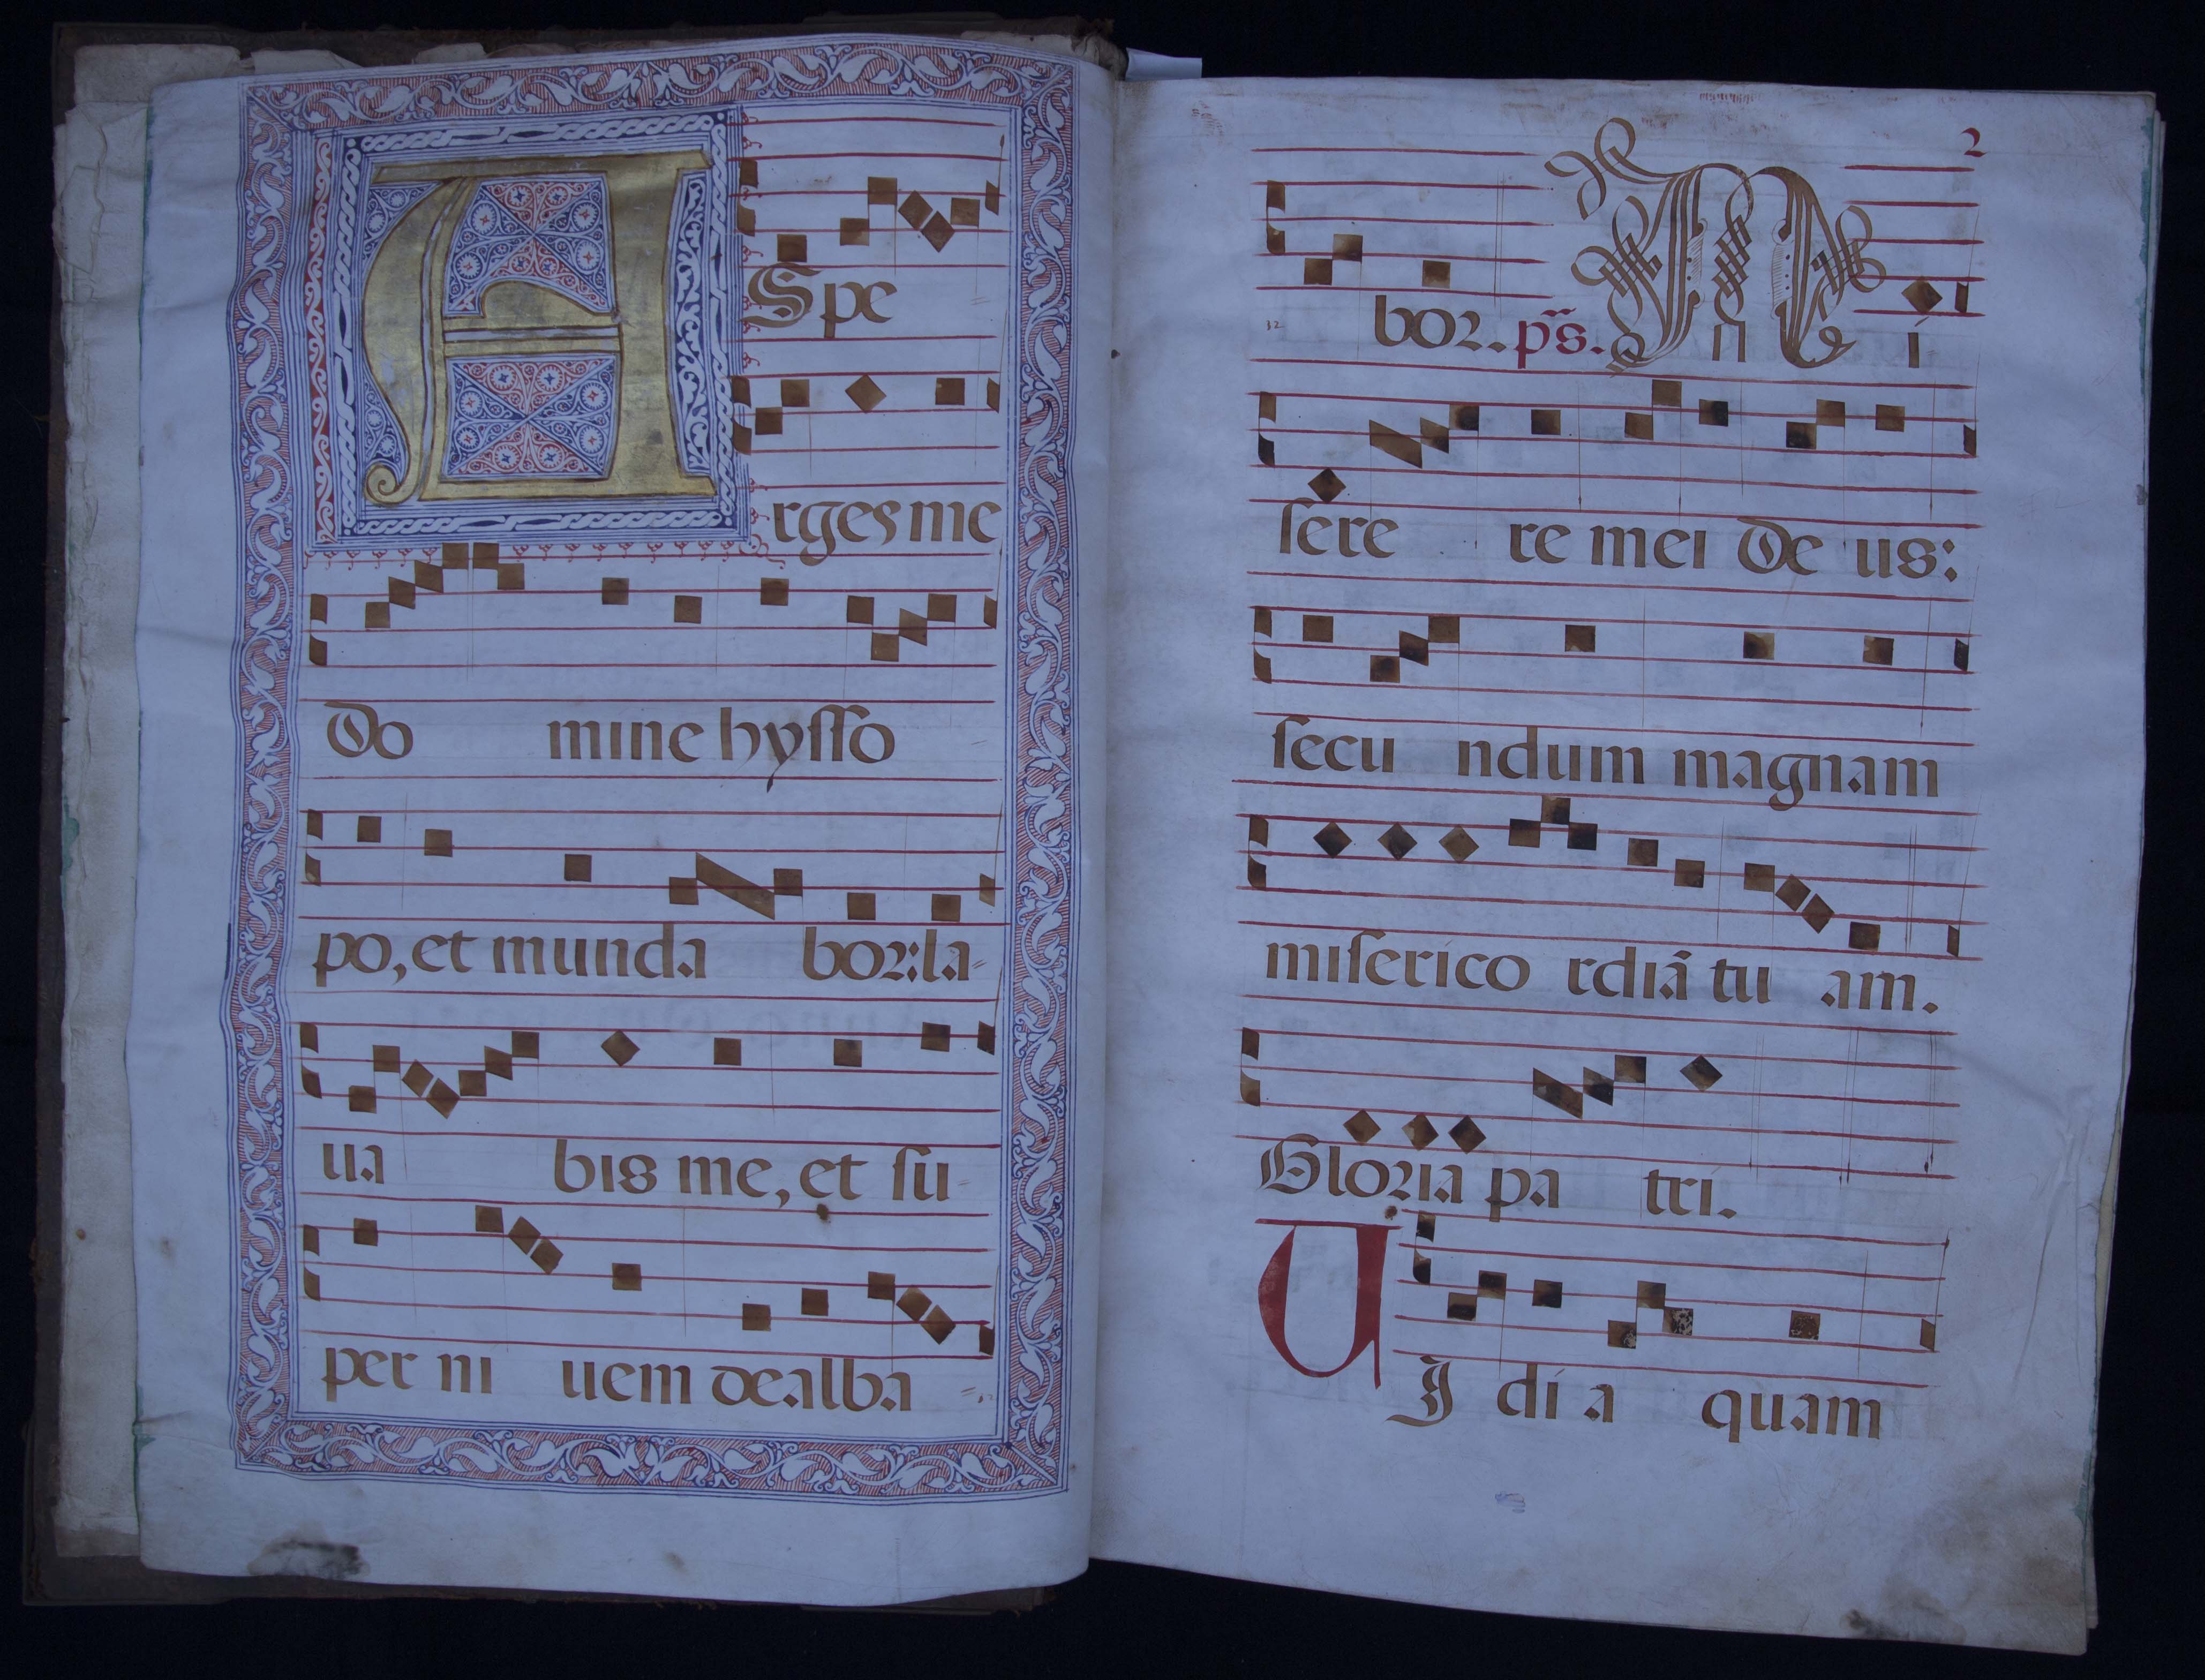 A Spe
rges me
do mine hysso
po, et munda bor: la=
ua bis me, et su
per ni uem dealba
2
bor. ps. M i
sere re mei de us:
secu ndum magnam
miserico rdiã tu am.
Gloria pa tri.
U I di a quam